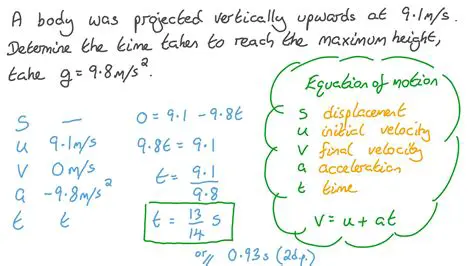 A body was projected vertically upwards at 9.1m/s.
Determine the time taken to reach the maximum height,
take g = 9.8m/s².
S —
u 9.1m/s
V 0m/s
a -9.8m/s²
t t
0 = 9.1 - 9.8t
9.8t = 9.1
t = 9.1/9.8
t = 13/14 s
or 0.93s (2dp.)
Equation of motion
s displacement
u initial velocity
v final velocity
a acceleration
t time
v = u + at